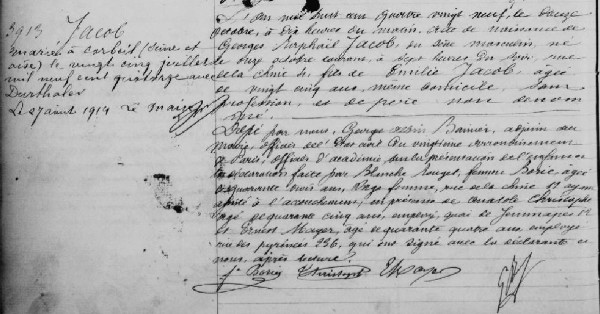 3913 Jacob
marié à Corbeil (Seine et
Oise) le vingt cinq juillet
mil neuf cent quatorze avec
Durthaler
Le 27 août 1914
L'an mil huit cent quatre vingt neuf, le douze
octobre, à dix heures du matin, acte de naissance de
Georges Raphaël Jacob, du sexe masculin, né
le onze octobre courant, à sept heures du soir, rue
de la Chine 4; fils de Emilie Jacob, âgée
de vingt cinq ans, même domicile, sans
profession, et de père non dénom
mé.
Dressé par nous, Georges Bannier, adjoint au
maire, officier de l'état civil du vingtième arrondissement
de Paris, officier d'académie sur la présentation de l'enfant et
la déclaration faite par Blanche femme Boric, âgée
de quarante trois ans, sage femme, rue de la Chine
à l'accouchement; en présence de Christophe
âgé de quarante cinq ans, employé, quai de Jemmapes
et Ernest Mayer, âgé de quarante quatre ans, employé
rue des Pyrénées 236, qui ont signé avec la déclarante et
nous, après lecture.
f. Boric Christophe E Mayer